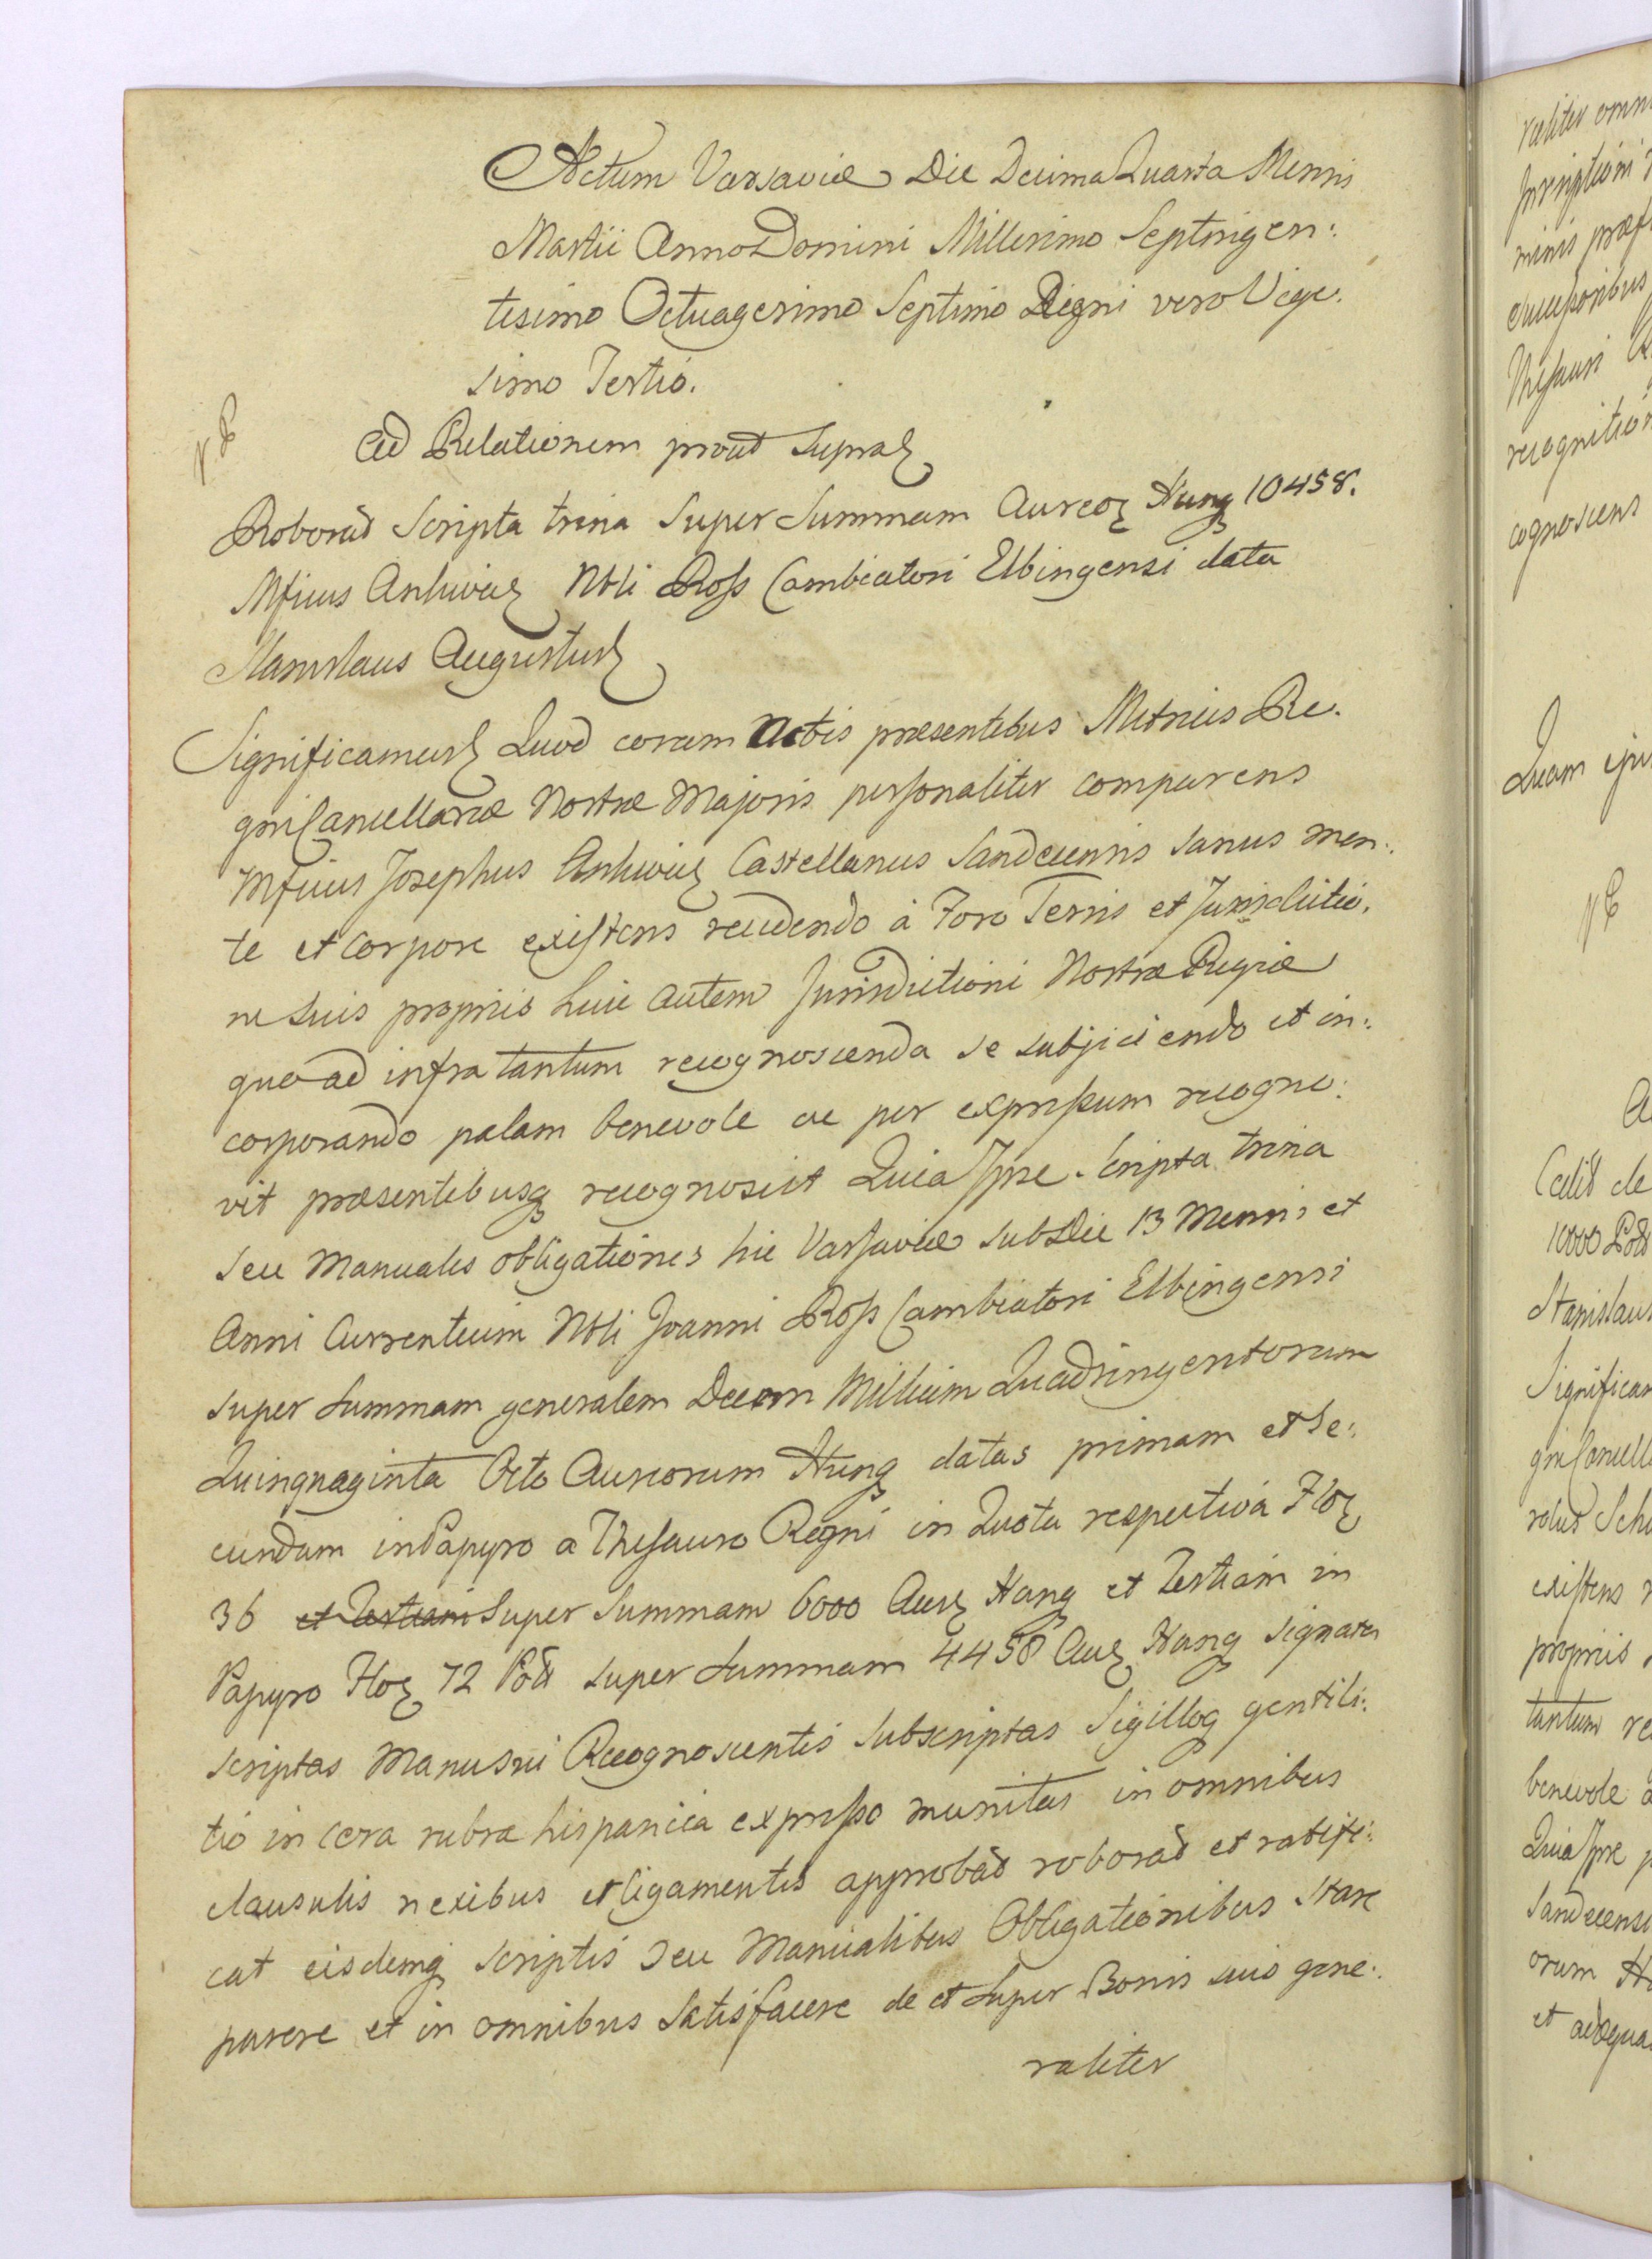 Actum Varsaviæ Die Decima Quarta Mensis
Martii Anno Domini Millesimo Septingen:
tesimo Octuagesimo Septimo Regni vero Vige:
simo Tertio.
Ad Relationem prout supra
Roborat Scripta trina Super Summam Aureor Hung 10458.
Mficus Ankwicz Nbli Ross Cambiatori Elbingensi data
Stanislaus Augustus
Significamus Quod coram Actis præsentibus Metrices Re:
gni Cancellariæ Nostræ Majoris personaliter comparens
Mficus Josephus Ankwicz Castellanus Sandecensis sanus men:
te et corpore existens recedendo à Foro Terris et Jurisdictio:
ne suis propriis huic autem Jurisdictioni Nostræ Regiæ
quo ad infra tantum recognoscenda se subjiciendo et in:
corporando palam benevole ac per expressum recogno:
vit præsentibusq recognoscit Quia Ipse Scripta trina
seu Manuales obligationes hic Varsaviæ sub Die 13 Mensis et
Anni Currentium Nbli Joanni Ross Cambiatori Elbingensi
super Summam generalem Decem Millium Quadringentorum
Quinquaginta Octo Aureorum Hung datas primam et Se:
cundam in Papyro a Thesauro Regni in Quota respectiva Flor
36 et Tertiam Super Summam 6000 Aur Hung et Tertiam in
Papyro Flor 72 Poll super Summam 4458 Aur Hung signata
scriptas Manu sui Recognoscentis Subscriptas Sigilloq gentili:
tio in Cera rubra hispanica expresso munitas in omnibus
clausulis nexibus et ligamentis approbat roborat et ratifi:
cat eisdemq Scriptis seu Manualibus Obligationibus stare
parere et in omnibus Satisfacere de et Super Bonis suis gene:
raliter
raliter omn
Inscriptioni
minis præf
Successoribus
Thesauri
recognition
cognoscens
Quam ipsi
Cedit de
10000 Poll
Stanislaus
Significam
gni Cancell
existens
propriis
tantum re
benevole
Quia Ipse p
Sandecensi
orum Hu
et adæqua